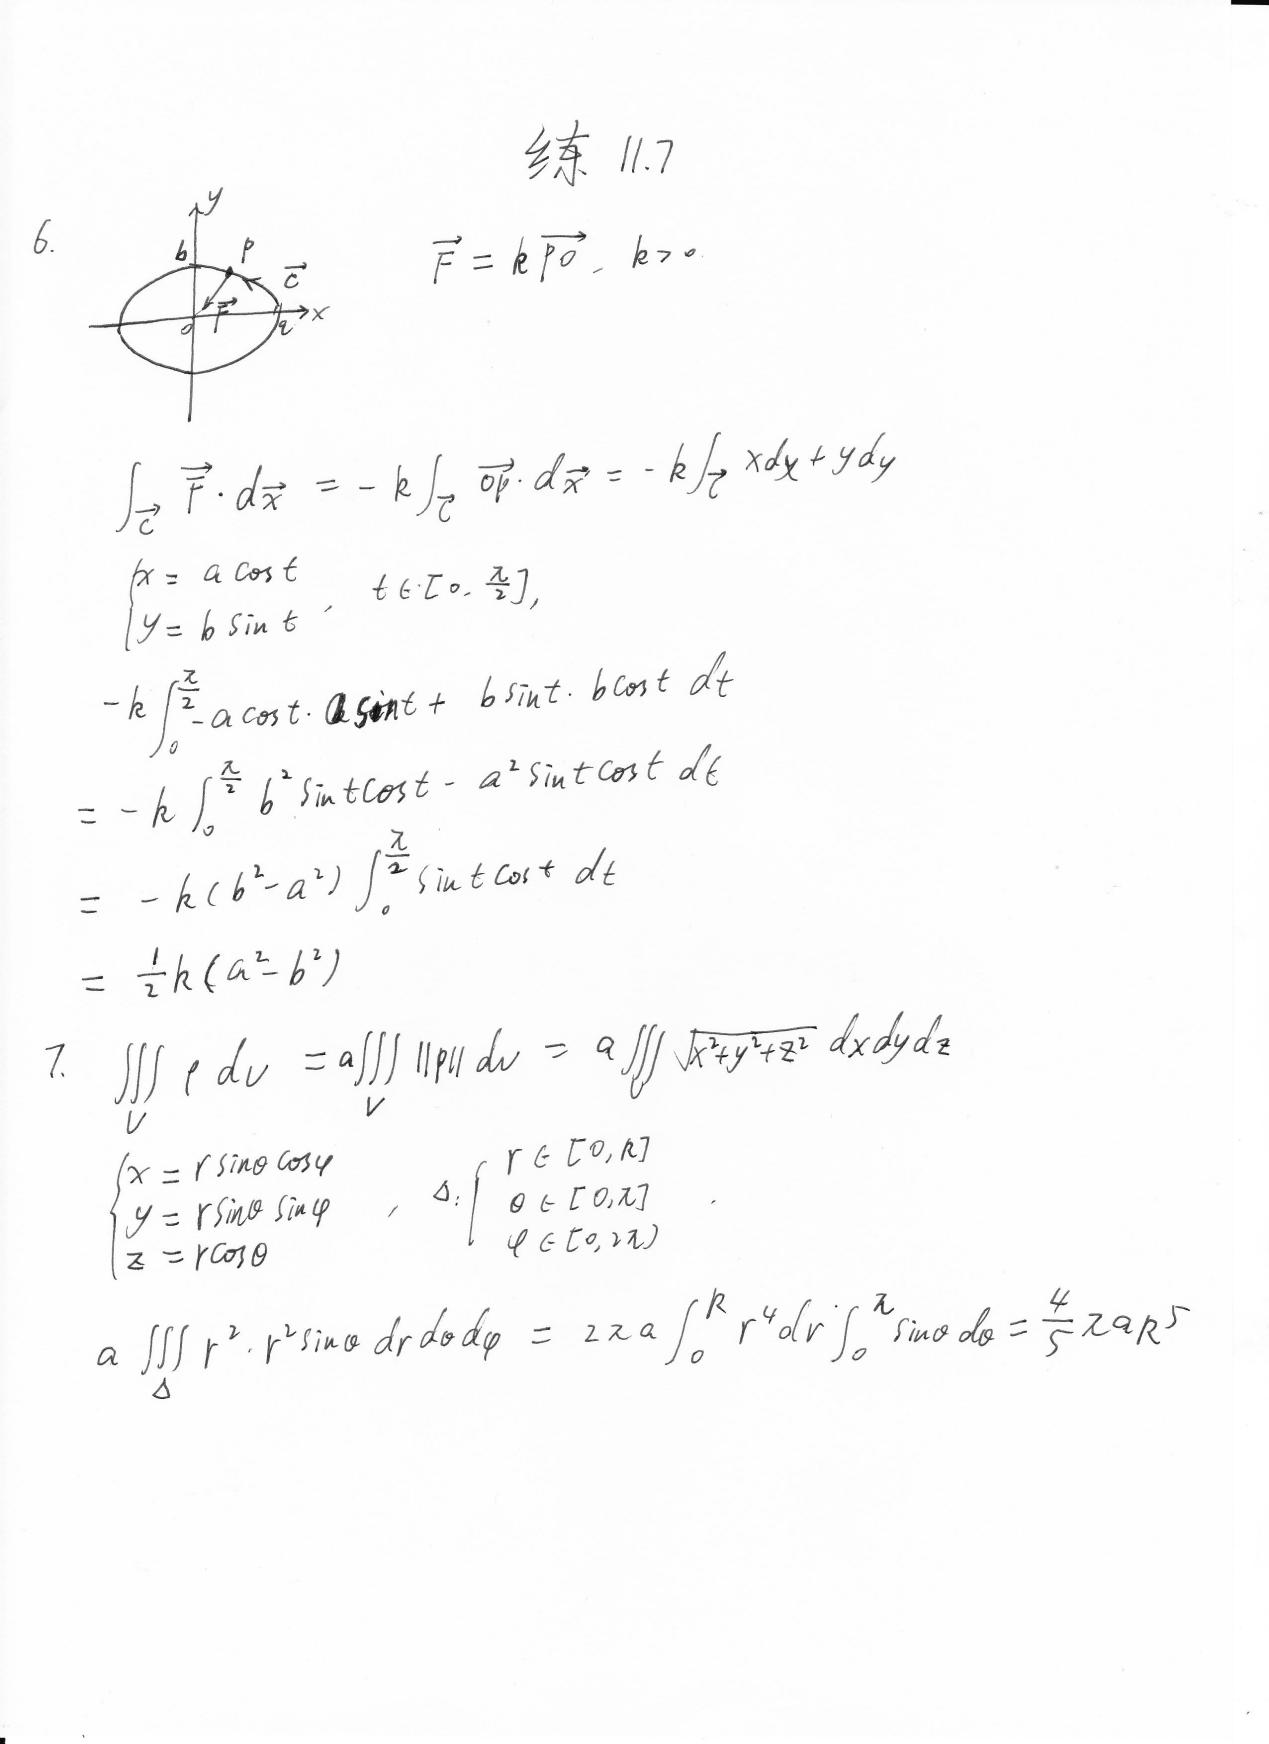 练 11.7
6.
y
b P \vec{C}
\vec{F}
o a x
\vec{F} = k\vec{PO}, k>0.
∫_{\vec{C}} \vec{F}·d\vec{x} = -k∫_{\vec{C}} \vec{OP}·d\vec{x} = -k∫_{\vec{C}} xdx+ydy
{x = a cos t
{y = b sin t , t∈[0, π/2],
-k∫_0^{π/2} -a cos t · a sin t + b sin t · b cos t dt
= -k∫_0^{π/2} b² sin t cos t - a² sin t cos t dt
= -k(b²-a²)∫_0^{π/2} sin t cos t dt
= 1/2 k(a²-b²)
7. ∭_V ρ dv = a∭_V ||P|| dv = a∭_V √(x²+y²+z²) dxdydz
{x = r sinθ cosφ
{y = r sinθ sinφ
{z = r cosθ
, Δ: {r∈[0,R]
{θ∈[0,π]
{φ∈[0,2π) .
a∭_Δ r²·r² sinθ drdθdφ = 2πa∫_0^R r⁴dr·∫_0^π sinθ dθ = 4/5 πaR⁵